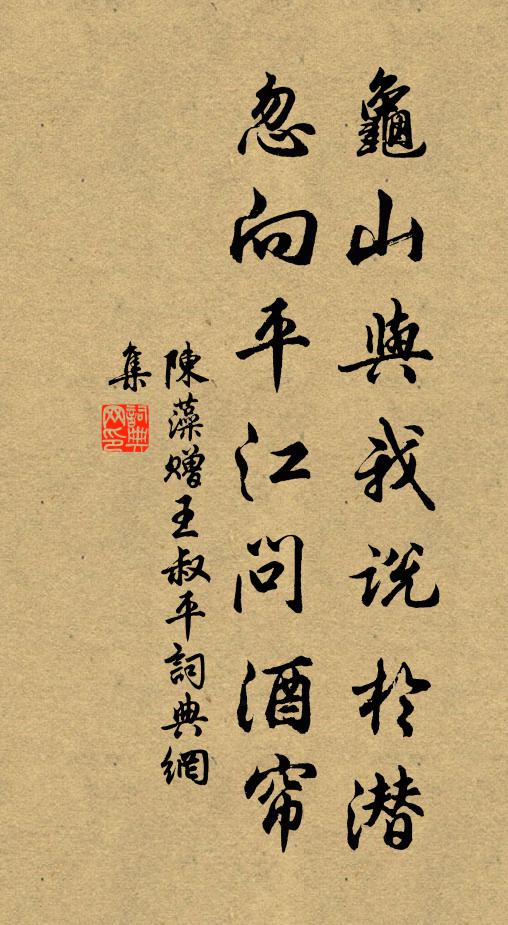 龜山與我說於潛
忽向平江問酒帘
陳藻贈王叔平詞典網
集
詞典網印